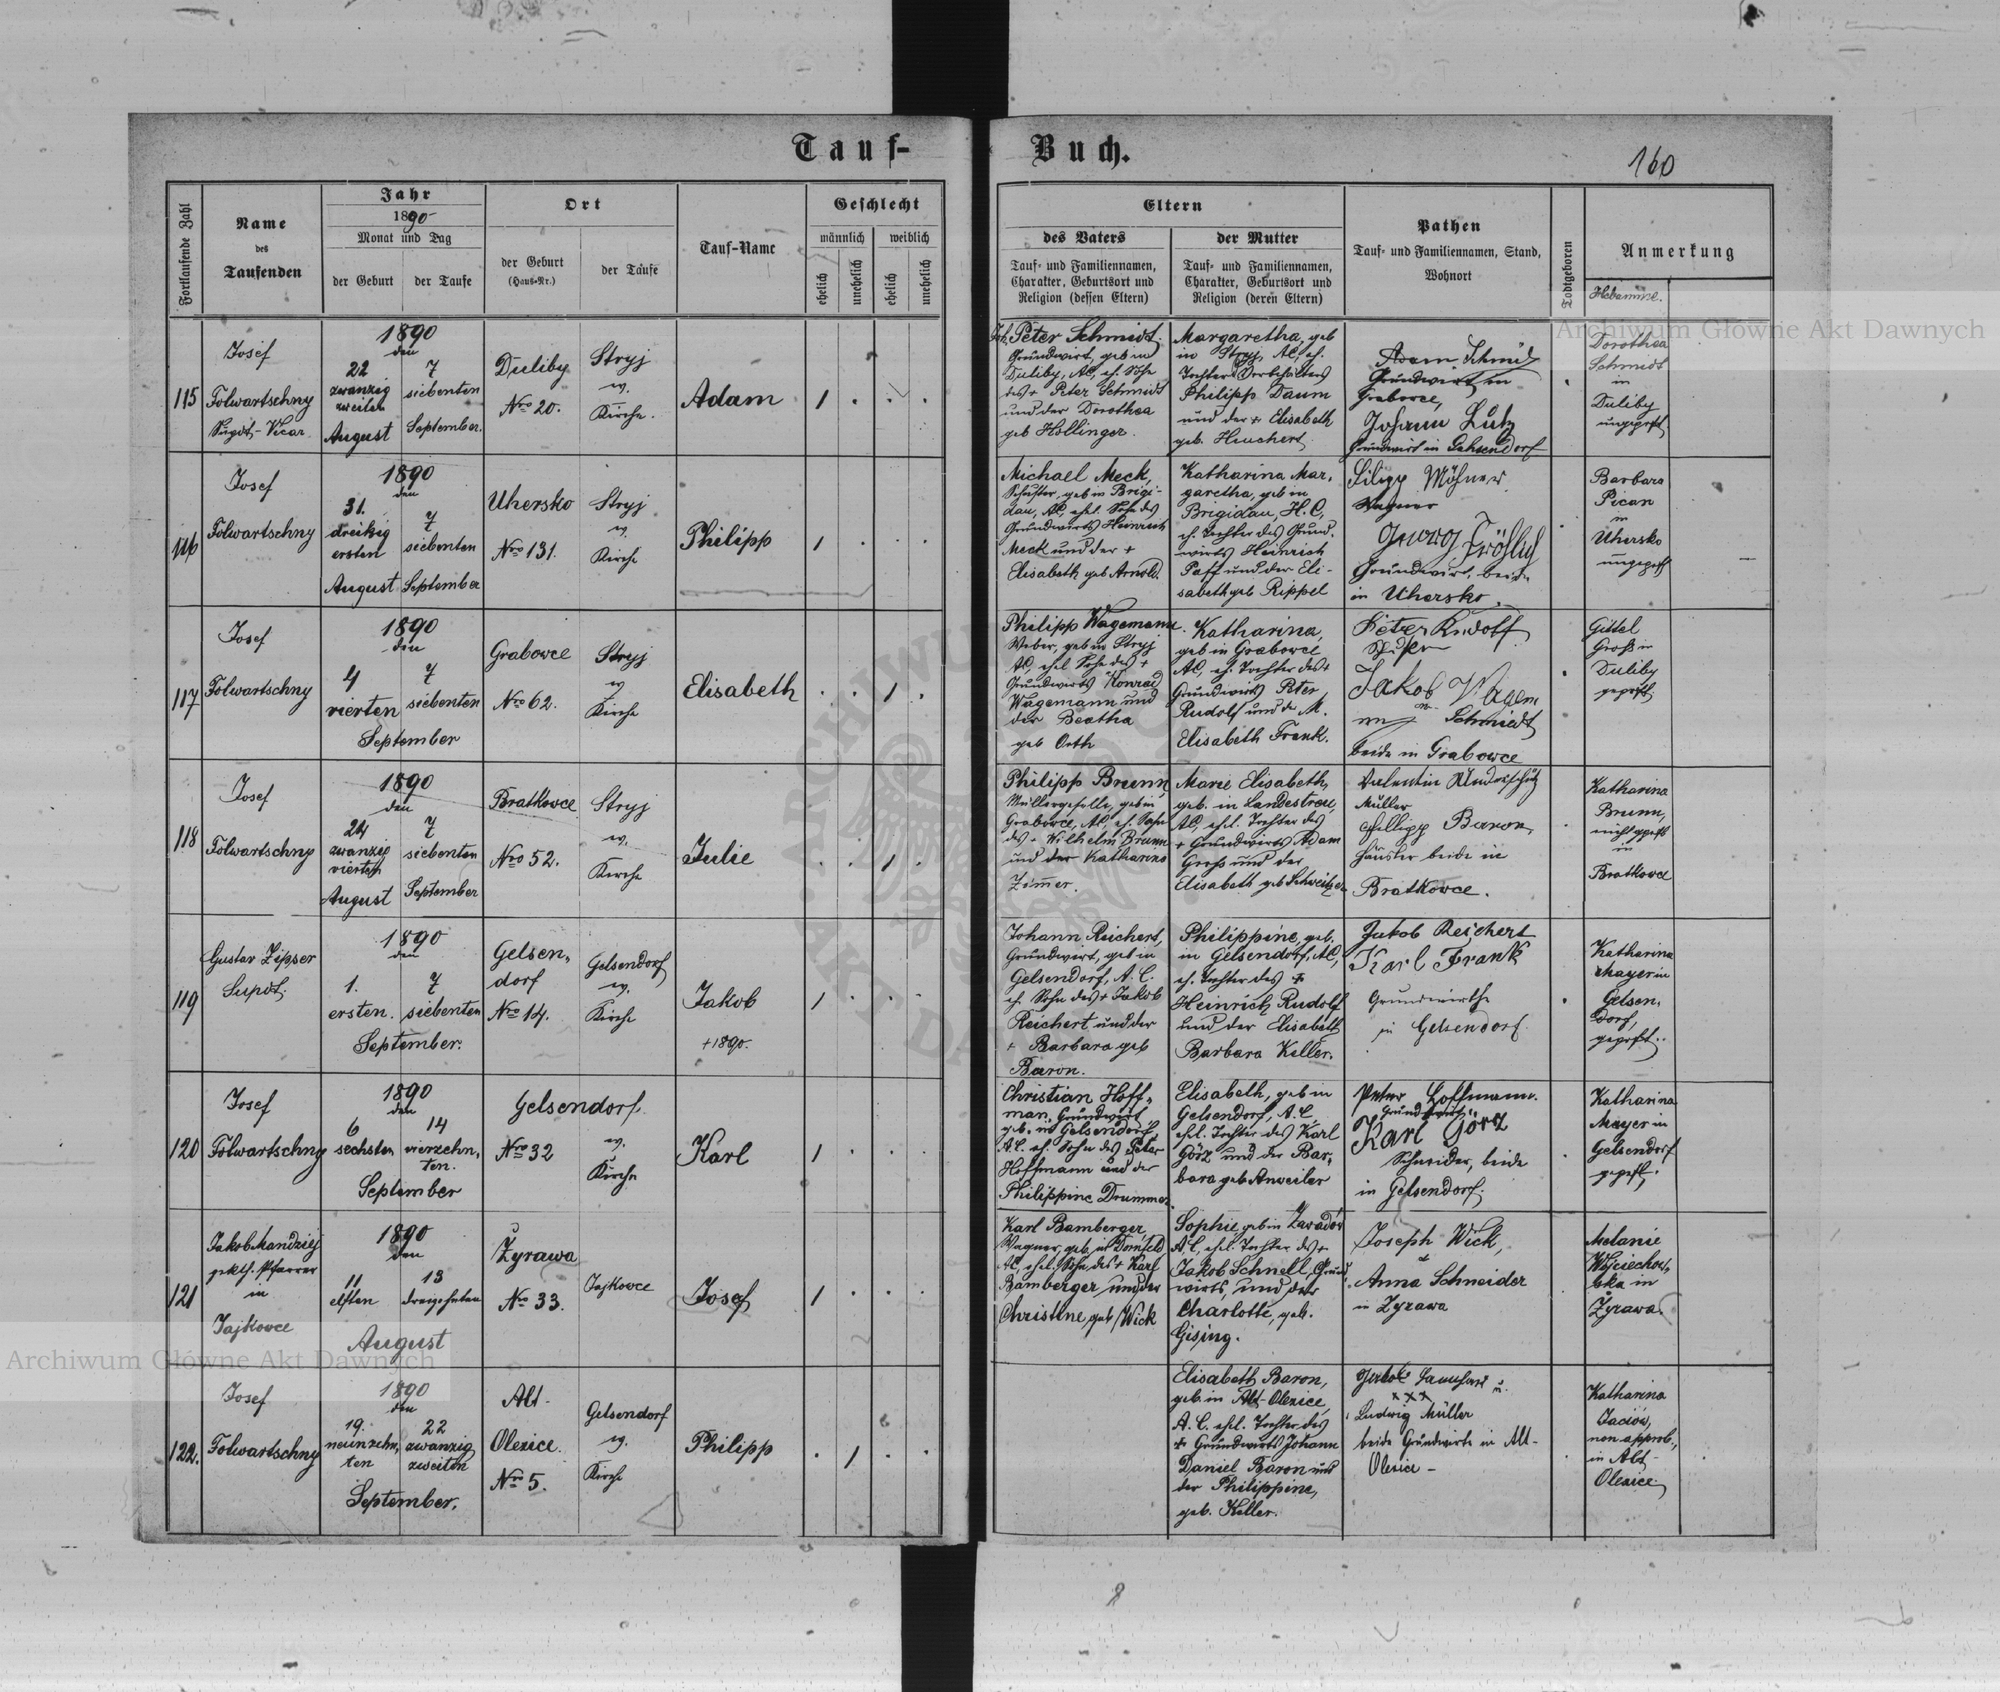 Tauf-
Buch.
160
Fortlaufende Zahl
Name
des
Taufenden
Jahr
1890
Monat und Tag
der Geburt
der Taufe
Ort
der Geburt
(Haus-Nr.)
der Taufe
Tauf-Name
Geschlecht
männlich
weiblich
ehelich
unehelich
ehelich
unehelich
Eltern
des Vaters
Tauf- und Familiennamen,
Charakter, Geburtsort und
Religion (dessen Eltern)
der Mutter
Tauf- und Familiennamen,
Charakter, Geburtsort und
Religion (deren Eltern)
Pathen
Tauf- und Familiennamen, Stand,
Wohnort
Todtgeboren
Anmerkung
Hebamme.
115
Josef
Folwartschny
Supdt.-Vicar
1890
den
22
zwanzig
zweiten
August
7
siebenten
September.
Duliby
Nro 20.
Stryj
ev.
Kirche.
Adam
1
Peter Schmidt.
Grundwirt, geb in
Duliby, AC, eh. Sohn
des + Peter Schmidt
und der Dorothea
geb Hollinger.
Margaretha, geb
in Stryj, AC, eh.
Philipp Daum
und der + Elisabeth
geb. Heuchert.
Adam Schmid
Grundwirt in
Grabovce,
Johann Lutz
Grundwirt in Gelsendorf
Dorothea
Schmidt
in
Duliby
ungeprft.
116
Josef
Folwartschny
1890
den
31.
dreißig
ersten
August
7
siebenten
September
Uhersko
Nro 131.
Stryj
ev.
Kirche
Philipp
1
Michael Meck,
Schuster, geb in Brigi-
dau, AC, ehel. Sohn des
Grundwirts Heinrich
Meck und der +
Elisabeth geb Arnold.
Katharina Mar-
garetha, geb in
Brigidau, H. C,
eh. Tochter des Grund-
wirts Heinrich
Paff und der Eli-
sabeth geb Rippel
Filipp Möhner
Wagner
Georg Fröhlich
Grundwirt, beide
in Uhersko.
Barbara
Pican
in
Uhersko
ungeprft
117
Josef
Folwartschny
1890
den
4
vierten
7
siebenten
September
Grabowce
Nro 62.
Stryj
ev
Kirche
Elisabeth
1
Philipp Wagemann.
Weber, geb in Stryj
AC, ehel Sohn des +
Grundwirts Konrad
Wagemann und
der Beatha
geb Orth
Katharina,
geb in Grabowce
AC, eh. Tochter des +
Grundwirts Peter
Rudolf und d. M.
Elisabeth Frank.
Peter Rudolf
Jakob Wagem
Schmiedt
beide in Grabowce
Gittel
Groß in
Duliby
geprft.
118
Josef
Folwartschny
1890
den
24
zwanzig
vierten
August
7
siebenten
September
Bratkovce
Nro 52.
Stryj
ev.
Kirche
Julie
1
Philipp Brunn
Müllergeselle, geb in
Grabovce, AC, eh. Sohn
des + Wilhelm Brunn
und der Katharina
Zimmer.
Marie Elisabeth,
geb. in Landestreu,
AC, ehel. Tochter des
+ Grundwirts Adam
Groß und der
Elisabeth geb Schweitzer
Müller
Phillipp Baron,
Häusler beide in
Bratkovce.
Katharina
Brunn,
nicht geprft
in
Bratkovce
119
Gustav Zipser
Supdt.
1890
den
1.
ersten.
7
siebenten
September.
Gelsen-
dorf
Nro 14.
Gelsendorf
ev.
Kirche
Jakob
+1890.
1
Johann Reichert,
Grundwirt, geb in
Gelsendorf, A. C.
eh. Sohn des + Jakob
Reichert und der
+ Barbara geb
Baron.
Philippine, geb.
in Gelsendorf, AC,
eh. Tochter des +
Heinrich Rudolf
und der Elisabeth
Barbara Keller.
Jakob Reichert
Karl Frank
Grundwirthe
in Gelsendorf.
Katharina
Mayer in
Gelsen-
dorf,
geprft.
120
Josef
Folwartschny
1890
den
6
sechsten
14
vierzehn-
ten.
September
Gelsendorf.
Nro 32
ev.
Kirche
Karl
1
Christian Hoff-
man, Grundwirt
geb. in Gelsendorf
A.C. eh. Sohn des Peter
Hoffmann und der
Philippine Drummer
Elisabeth, geb in
Gelsendorf, A.C
ehel. Tochter des Karl
Görz und der Bar-
bara geb Anweiler
Peter Hoffmann.
Grundwirt
Karl Görz
Schneider, beide
in Gelsendorf.
Katharina
Mayer in
Gelsendorf
geprft.
121
Jakob Mandziej
grkth. Pfarrer
in
Jajkovce
1890
den
11
elften
13
dreizehnten
August
Żyrawa
Nro 33.
Jajkovce
Josef
1
Karl Bamberger,
Wagner, geb. in Dornfeld
AC, ehel. Sohn des + Karl
Bamberger und der
Christine, geb. Wick
Sophie, geb in Zavadów
A.C, ehel. Tochter des +
Jakob Schnell, Grund-
wirts, und der
Charlotte, geb.
Gising.
Joseph Wick,
Anna Schneider
in Zyrawa
Melanie
Wojciechow-
ska in
Żyrawa.
122.
Josef
Folwartschny
1890
den
19.
neunzehn-
ten
22
zwanzig
zweiten
September.
Alt-
Olexice.
Nro 5.
Gelsendorf
ev.
Kirche
Philipp
1
Elisabeth Baron,
geb. in Alt-Olexice,
A. C. ehel. Tochter des
+ Grundwirts Johann
Daniel Baron und
der Philippine,
geb. Keller.
Jakob
xxx
Ludwig Müller
beide Grundwirte in Alt-
Olexice -
Katharina
non approb.,
in Alt-
Olexice.
Archiwum Główne Akt Dawnych
Archiwum Główne Akt Dawnych